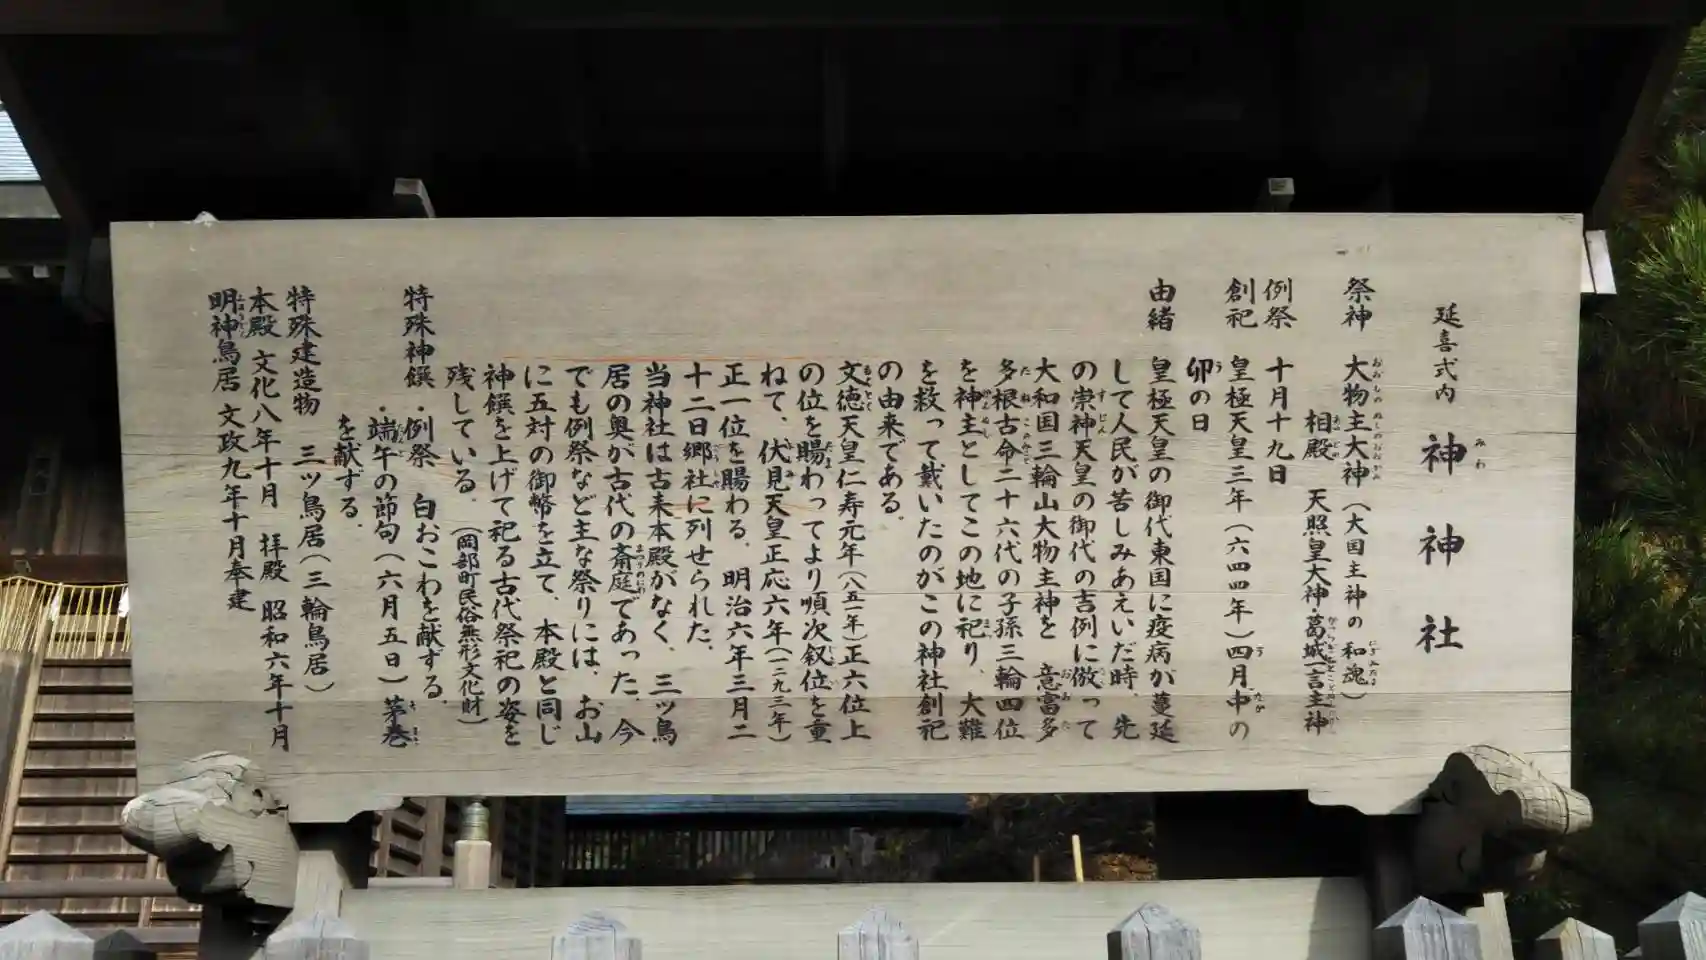 延喜式内 神神社
祭神 大物主大神(大国主神の和魂)
相殿 天照皇大神・葛城一言主神
例祭 十月十九日
創祀 皇極天皇三年(六四四年)四月中の
卯の日
由緒 皇極天皇の御代東国に疫病が蔓延
して人民が苦しみあえいだ時、先
の崇神天皇の御代の吉例に倣って
大和国三輪山大物主神を 意富多
多根古命二十六代の子孫三輪四位
を神主としてこの地に祀り、大難
を救って戴いたのがこの神社創祀
の由来である。
文徳天皇仁寿元年(八五一年)正六位上
の位を賜わってより順次叙位を重
ねて、伏見天皇正応六年(一二九三年)
正一位を賜わる。明治六年三月二
十二日郷社に列せられた。
当神社は古来本殿がなく、三ッ鳥
居の奥が古代の斎庭であった。今
でも例祭など主な祭りには、お山
に五対の御幣を立て、本殿と同じ
神饌を上げて祀る古代祭祀の姿を
残している。(岡部町民俗無形文化財)
特殊神饌 ・例祭 白おこわを献ずる。
・端午の節句(六月五日)茅巻
を献ずる。
特殊建造物 三ッ鳥居(三輪鳥居)
本殿 文化八年十月 拝殿 昭和六年十月
明神鳥居 文政九年十月奉建